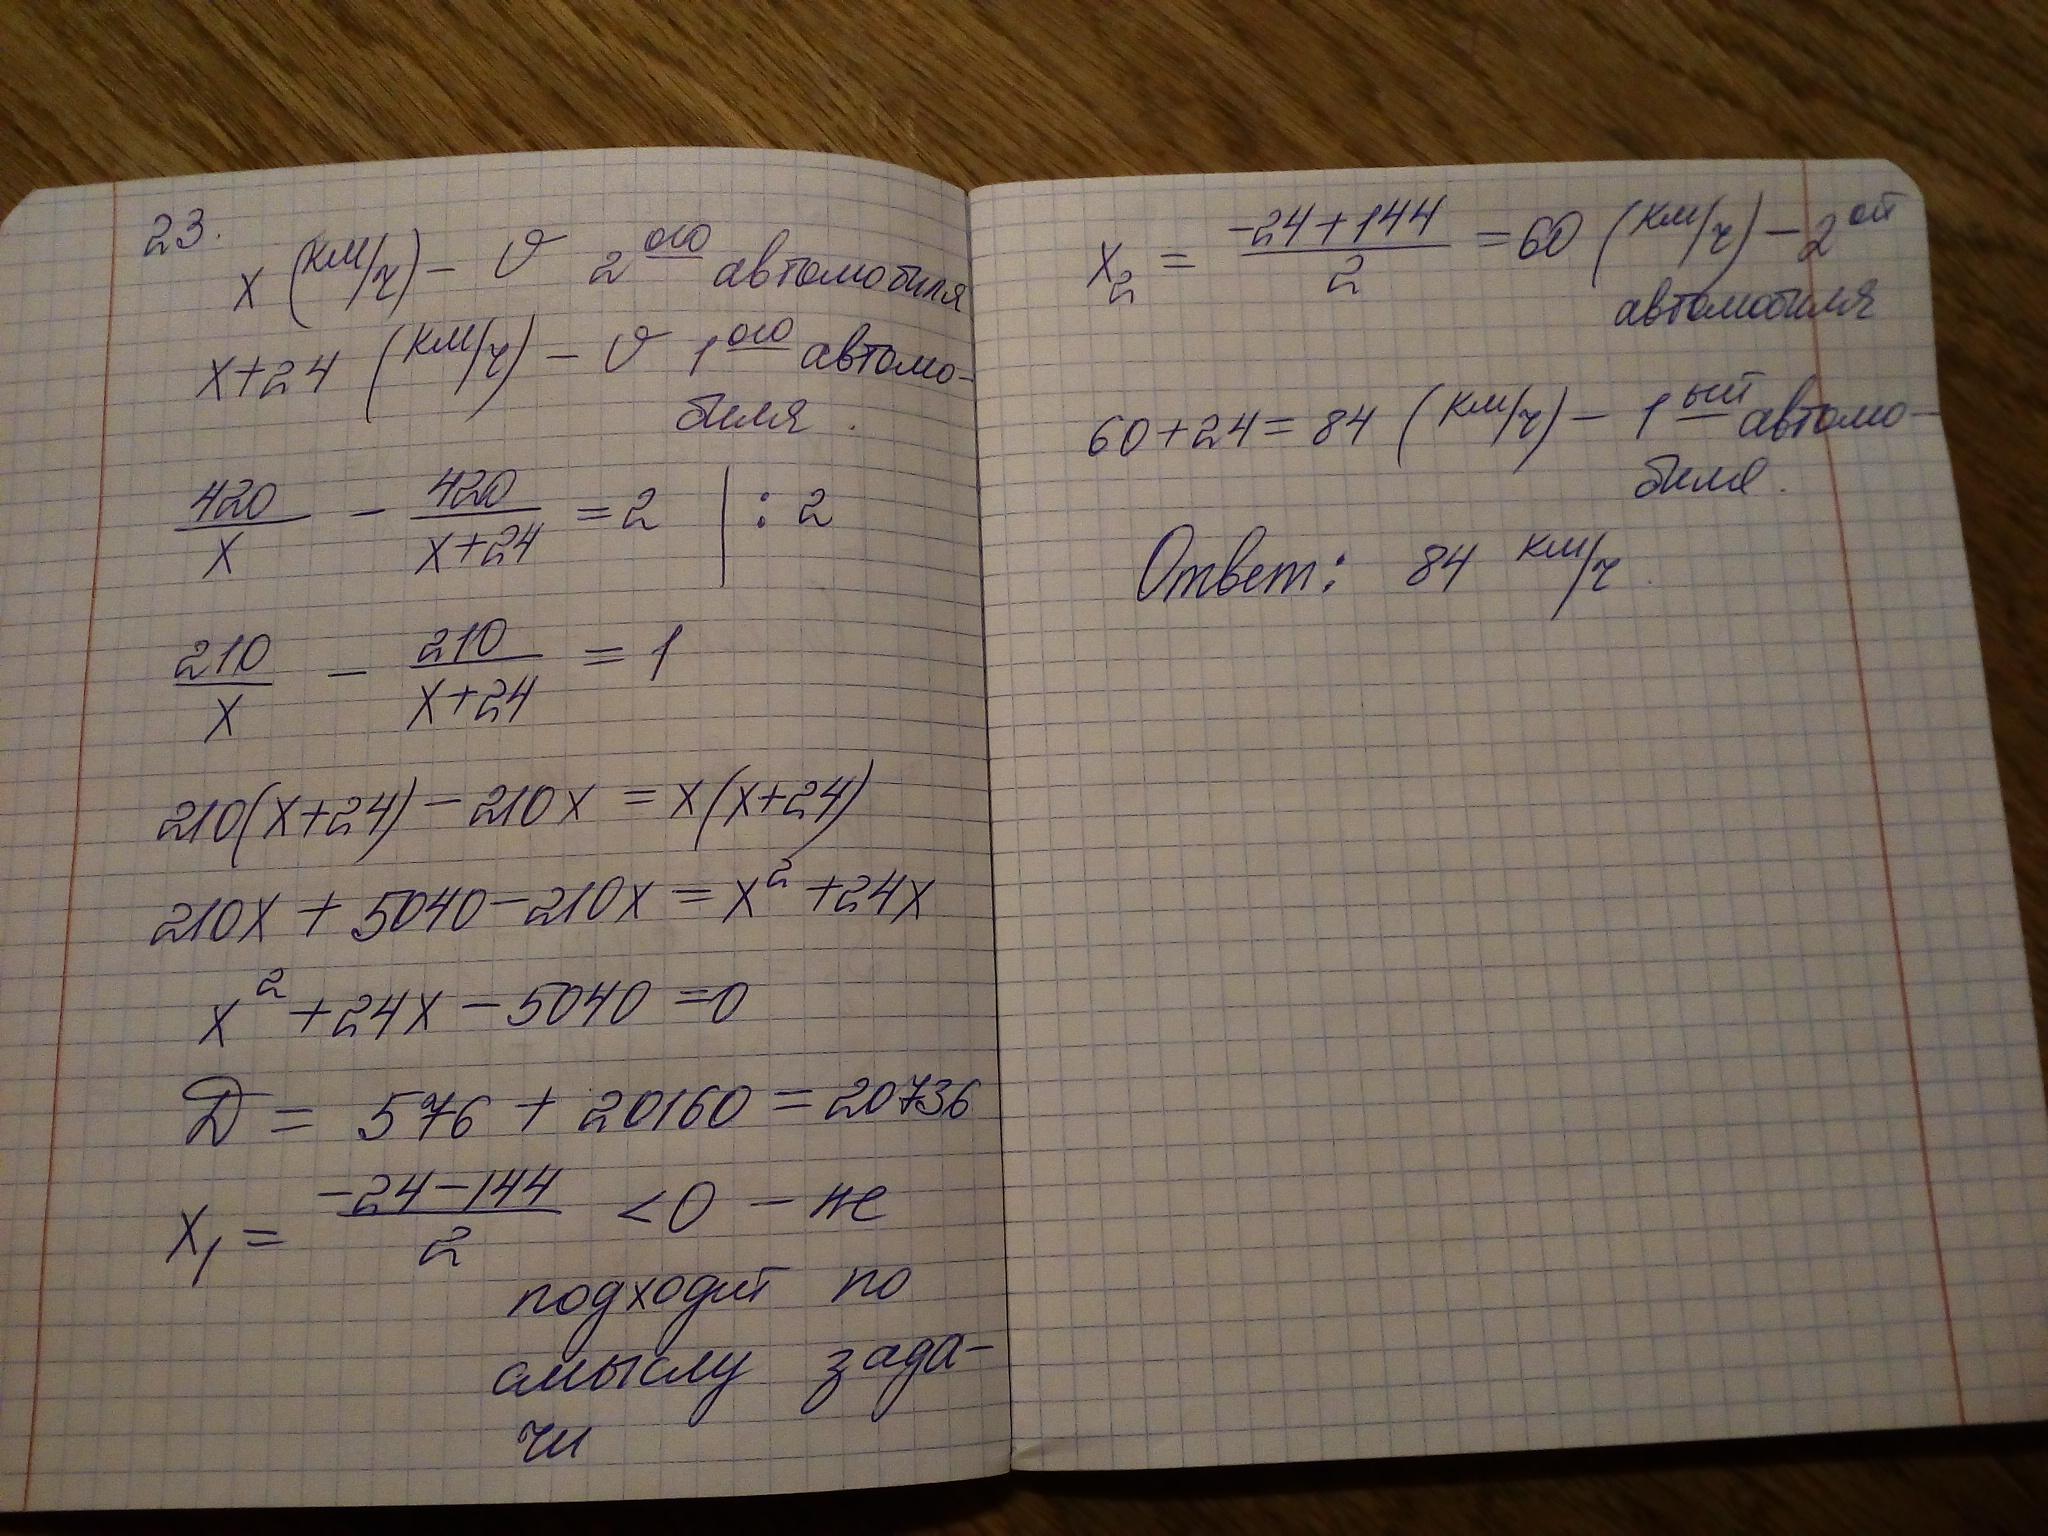 23.
x (км/ч) – v 2ого автомобиля
x+24 (км/ч) – v 1ого автомо-
биля.
420/x – 420/(x+24) = 2 | : 2
210/x – 210/(x+24) = 1
210(x+24) – 210x = x(x+24)
210x + 5040 – 210x = x² + 24x
x² + 24x – 5040 = 0
D = 576 + 20160 = 20736
x₁ = (–24–144)/2 < 0 – не
подходит по
смыслу зада-
чи
x₂ = (–24+144)/2 = 60 (км/ч) – 2ой
автомобиля
60+24 = 84 (км/ч) – 1ый автомо-
биля.
Ответ: 84 км/ч.